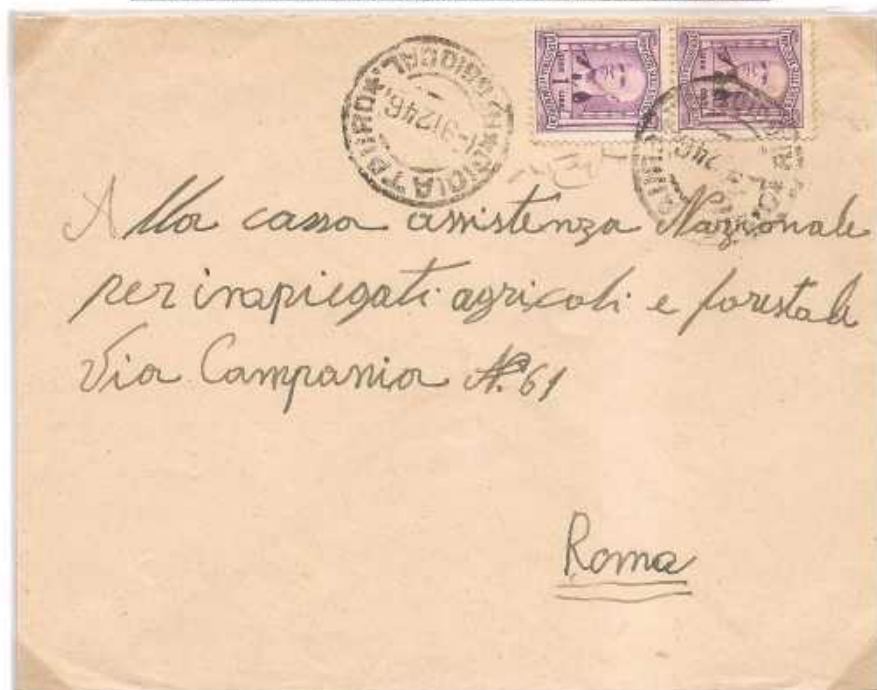 Alla cassa assistenza Nazionale
per inapiegati agricoli e forestali
Via Campania N.° 61
Roma